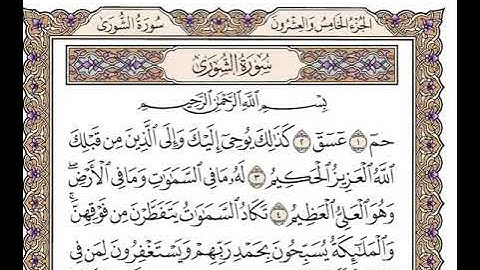 الجزء الخامس والعشرون سورة الشورى
سُورَةُ الشُّورَىٰ
بِسْمِ اللَّهِ الرَّحْمَٰنِ الرَّحِيمِ
حمٓ ۝١ عٓسٓقٓ ۝٢ كَذَٰلِكَ يُوحِىٓ إِلَيْكَ وَإِلَى ٱلَّذِينَ مِن قَبْلِكَ
ٱللَّهُ ٱلْعَزِيزُ ٱلْحَكِيمُ ۝٣ لَهُۥ مَا فِى ٱلسَّمَٰوَٰتِ وَمَا فِى ٱلْأَرْضِۖ
وَهُوَ ٱلْعَلِىُّ ٱلْعَظِيمُ ۝٤ تَكَادُ ٱلسَّمَٰوَٰتُ يَتَفَطَّرْنَ مِن فَوْقِهِنَّۚ
وَٱلْمَلَٰٓئِكَةُ يُسَبِّحُونَ بِحَمْدِ رَبِّهِمْ وَيَسْتَغْفِرُونَ لِمَن فِى